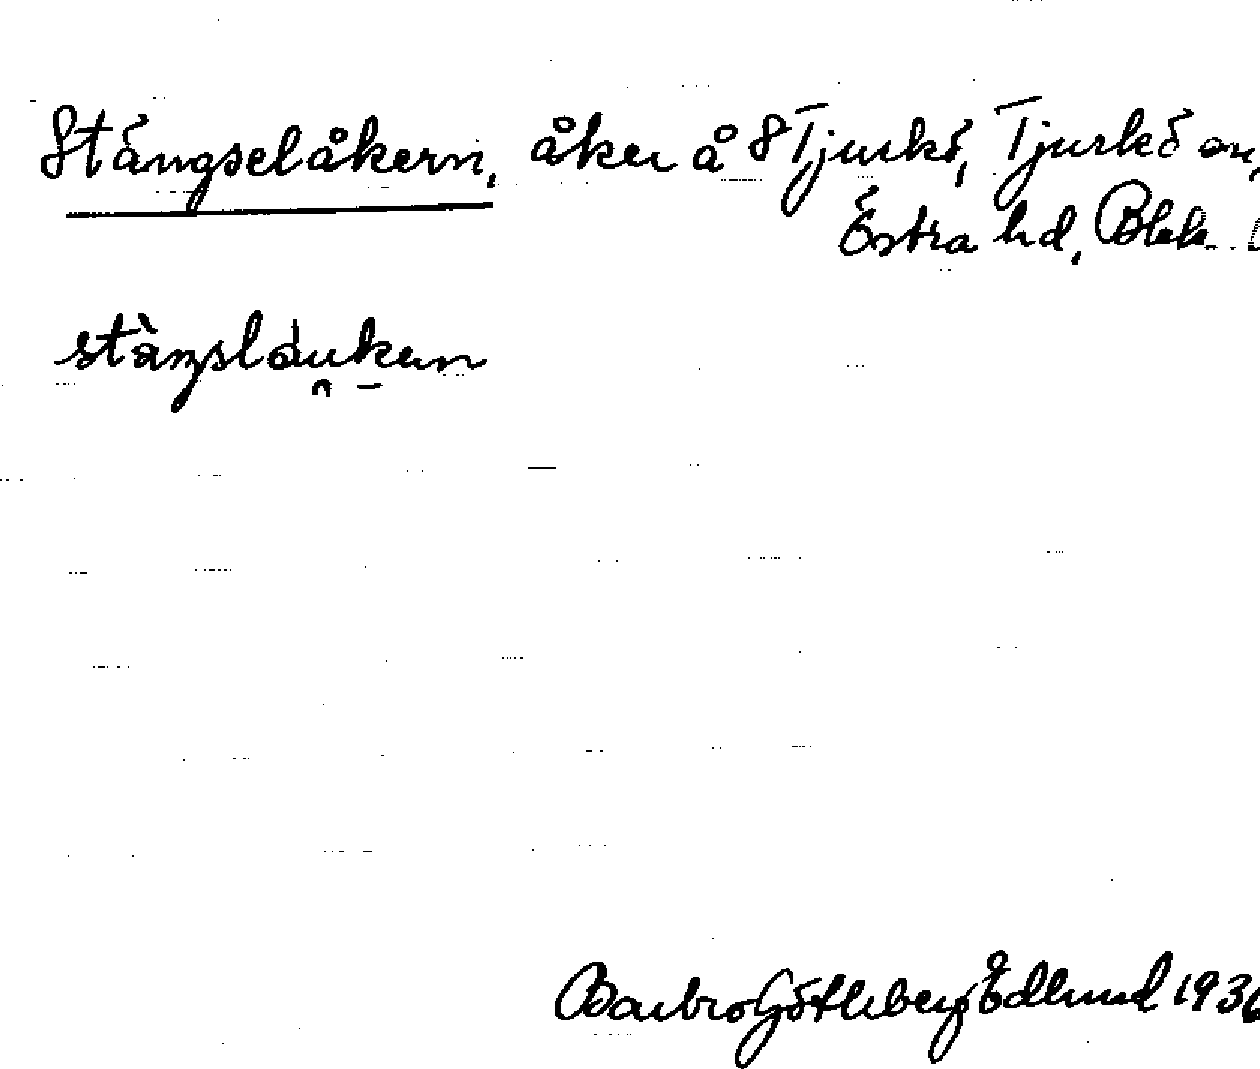 Stängselåkern, åker å S Tjurkö, Tjurkö sn,
Östra hd, Blek.
stàŋslåuken
Barbro Götleberg Edlund 1936